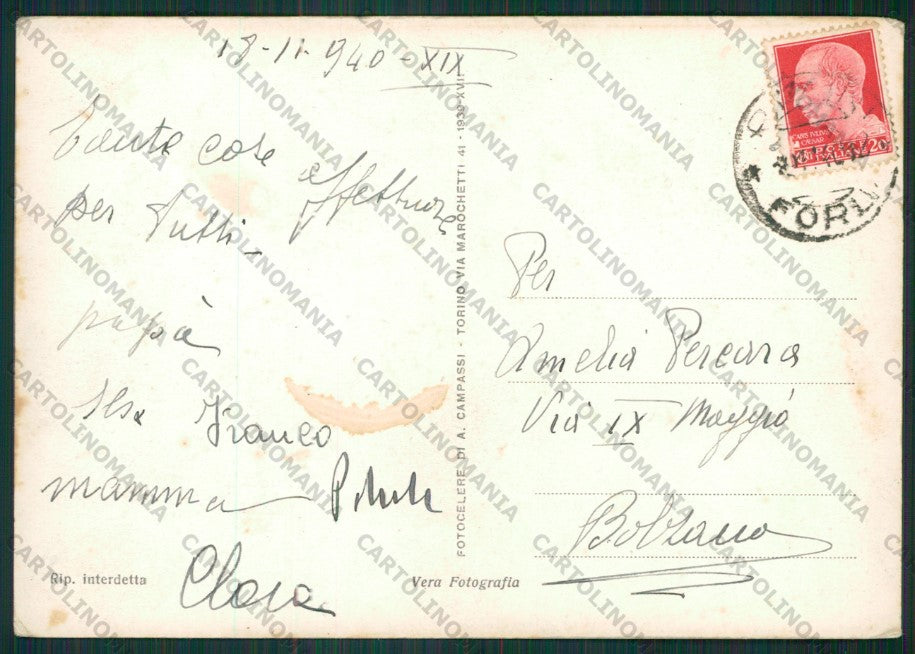 18-11-940-XIX
Tante cose
affettuose
per Tutti -
papà
Ilsa Franco
mamma
Clara
Rip. interdetta
Vera Fotografia
FOTOCELERE DI A. CAMPASSI - TORINO VIA MAROCHETTI 41 - 1939-XVII
CAIVS IVLIVS
CAESAR
POSTE
ITALIANE
20
FORLI
Per
Amelia Percara
Via IX Maggio
Bolzano
CARTOLINOMANIA